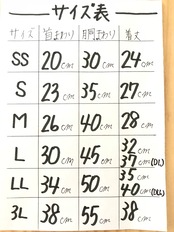 サイズ表
サイズ 首まわり 胴まわり 着丈
SS 20cm 30cm 24cm
S 23cm 35cm 27cm
M 26cm 40cm 28cm
L 30cm 45cm 32cm 37cm(DL)
LL 34cm 50cm 35cm 40cm(DLL)
3L 38cm 55cm 38cm